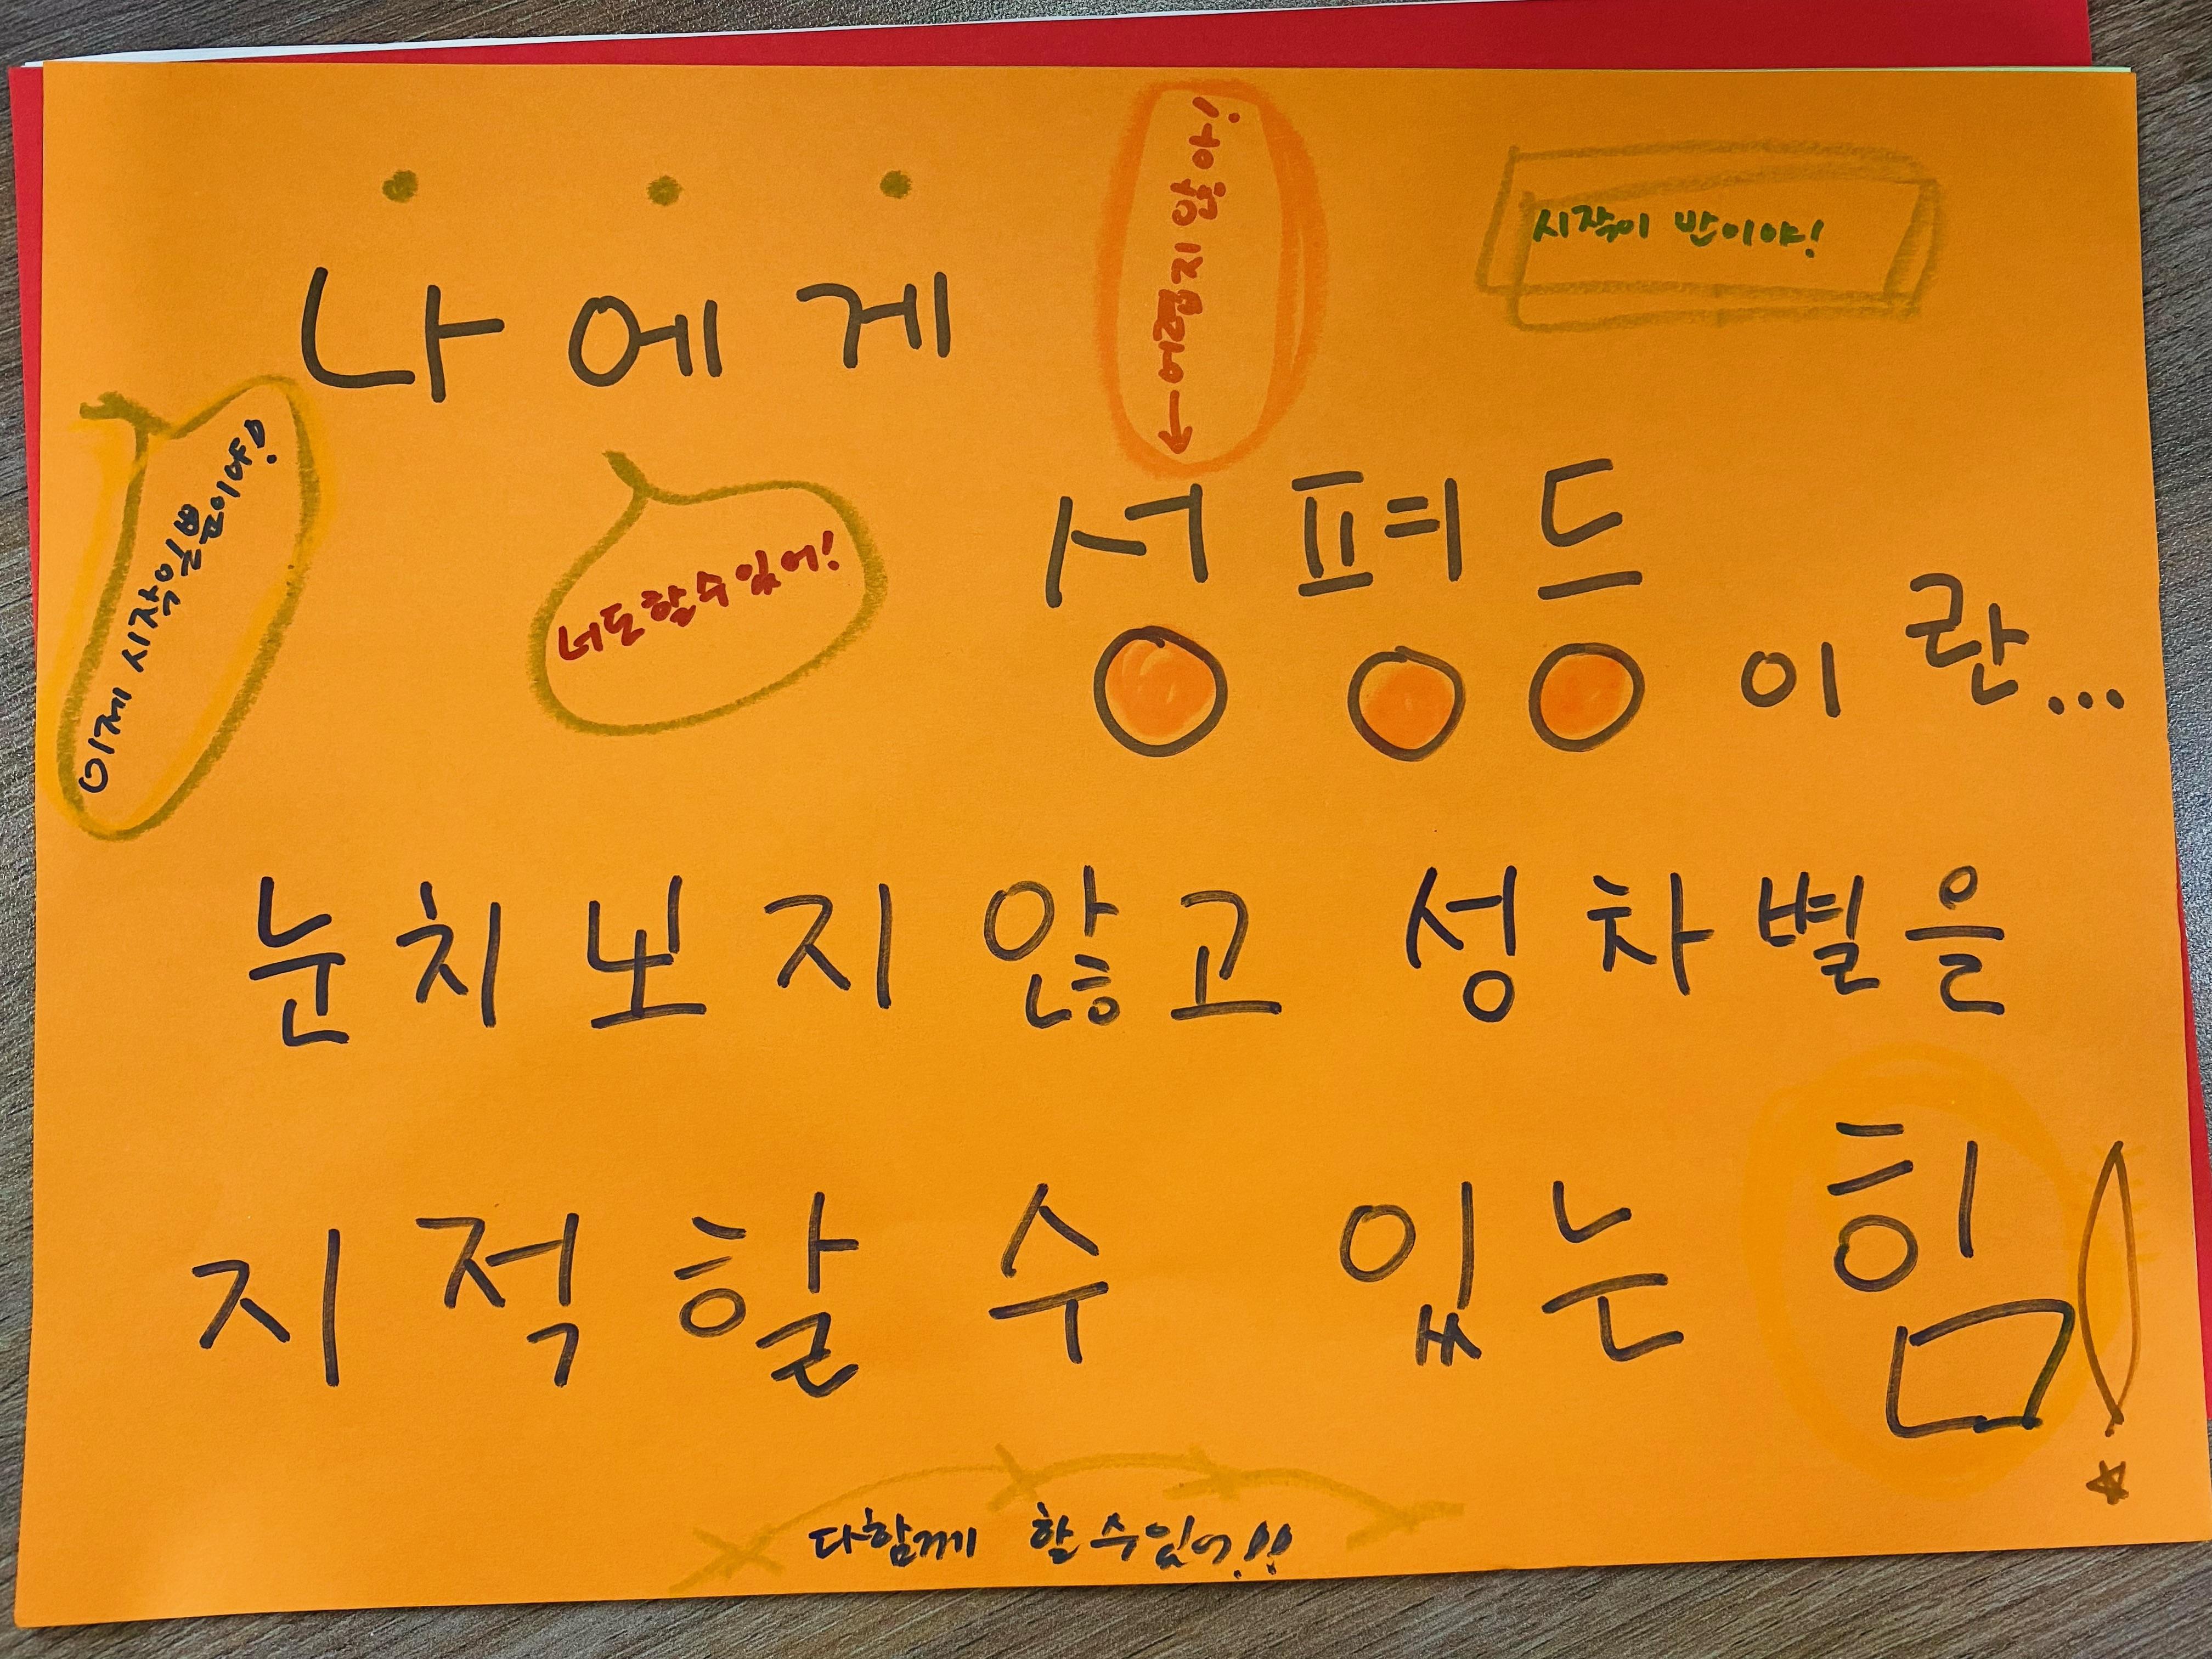 나에게
← 어렵지 않아!
시작이 반이야!
이제 시작일뿐이야!
너도할수있어!
성평등이란...
눈치보지 않고 성차별을
지적할 수 있는 힘!
다함께 할수있어!!